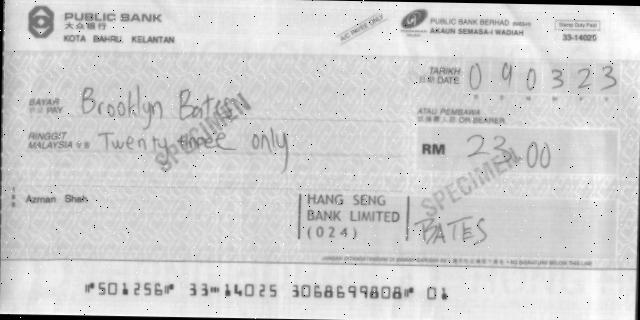 PUBLIC BANK
大众银行
KOTA BAHRU, KELANTAN
A/C PAYEE ONLY
PUBLIC BANK BERHAD
AKAUN SEMASA-I WADIAH
Stamp Duty Paid
33-14025
TARIKH
日期 DATE 090323
BAYAR
PAY Brooklyn Bates
ATAU PEMBAWA
OR BEARER
RINGGIT
MALAYSIA Twenty three only
RM 23.00
SPECIMEN
SPECIMEN
Azman Shah
HANG SENG
BANK LIMITED
(024)
BATES
⑈501256⑈ 33⑉14025 3068699808⑈ 01